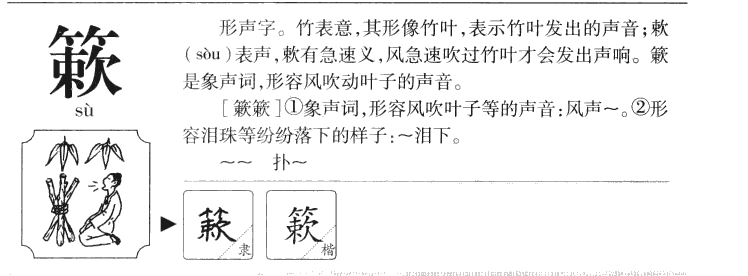 簌
sù
形声字。竹表意,其形像竹叶,表示竹叶发出的声音;欶
(sòu)表声,欶有急速义,风急速吹过竹叶才会发出声响。簌
是象声词,形容风吹动叶子的声音。
[簌簌]①象声词,形容风吹叶子等的声音:风声～。②形
容泪珠等纷纷落下的样子:～泪下。
～～ 扑～
簌 隶
簌 楷